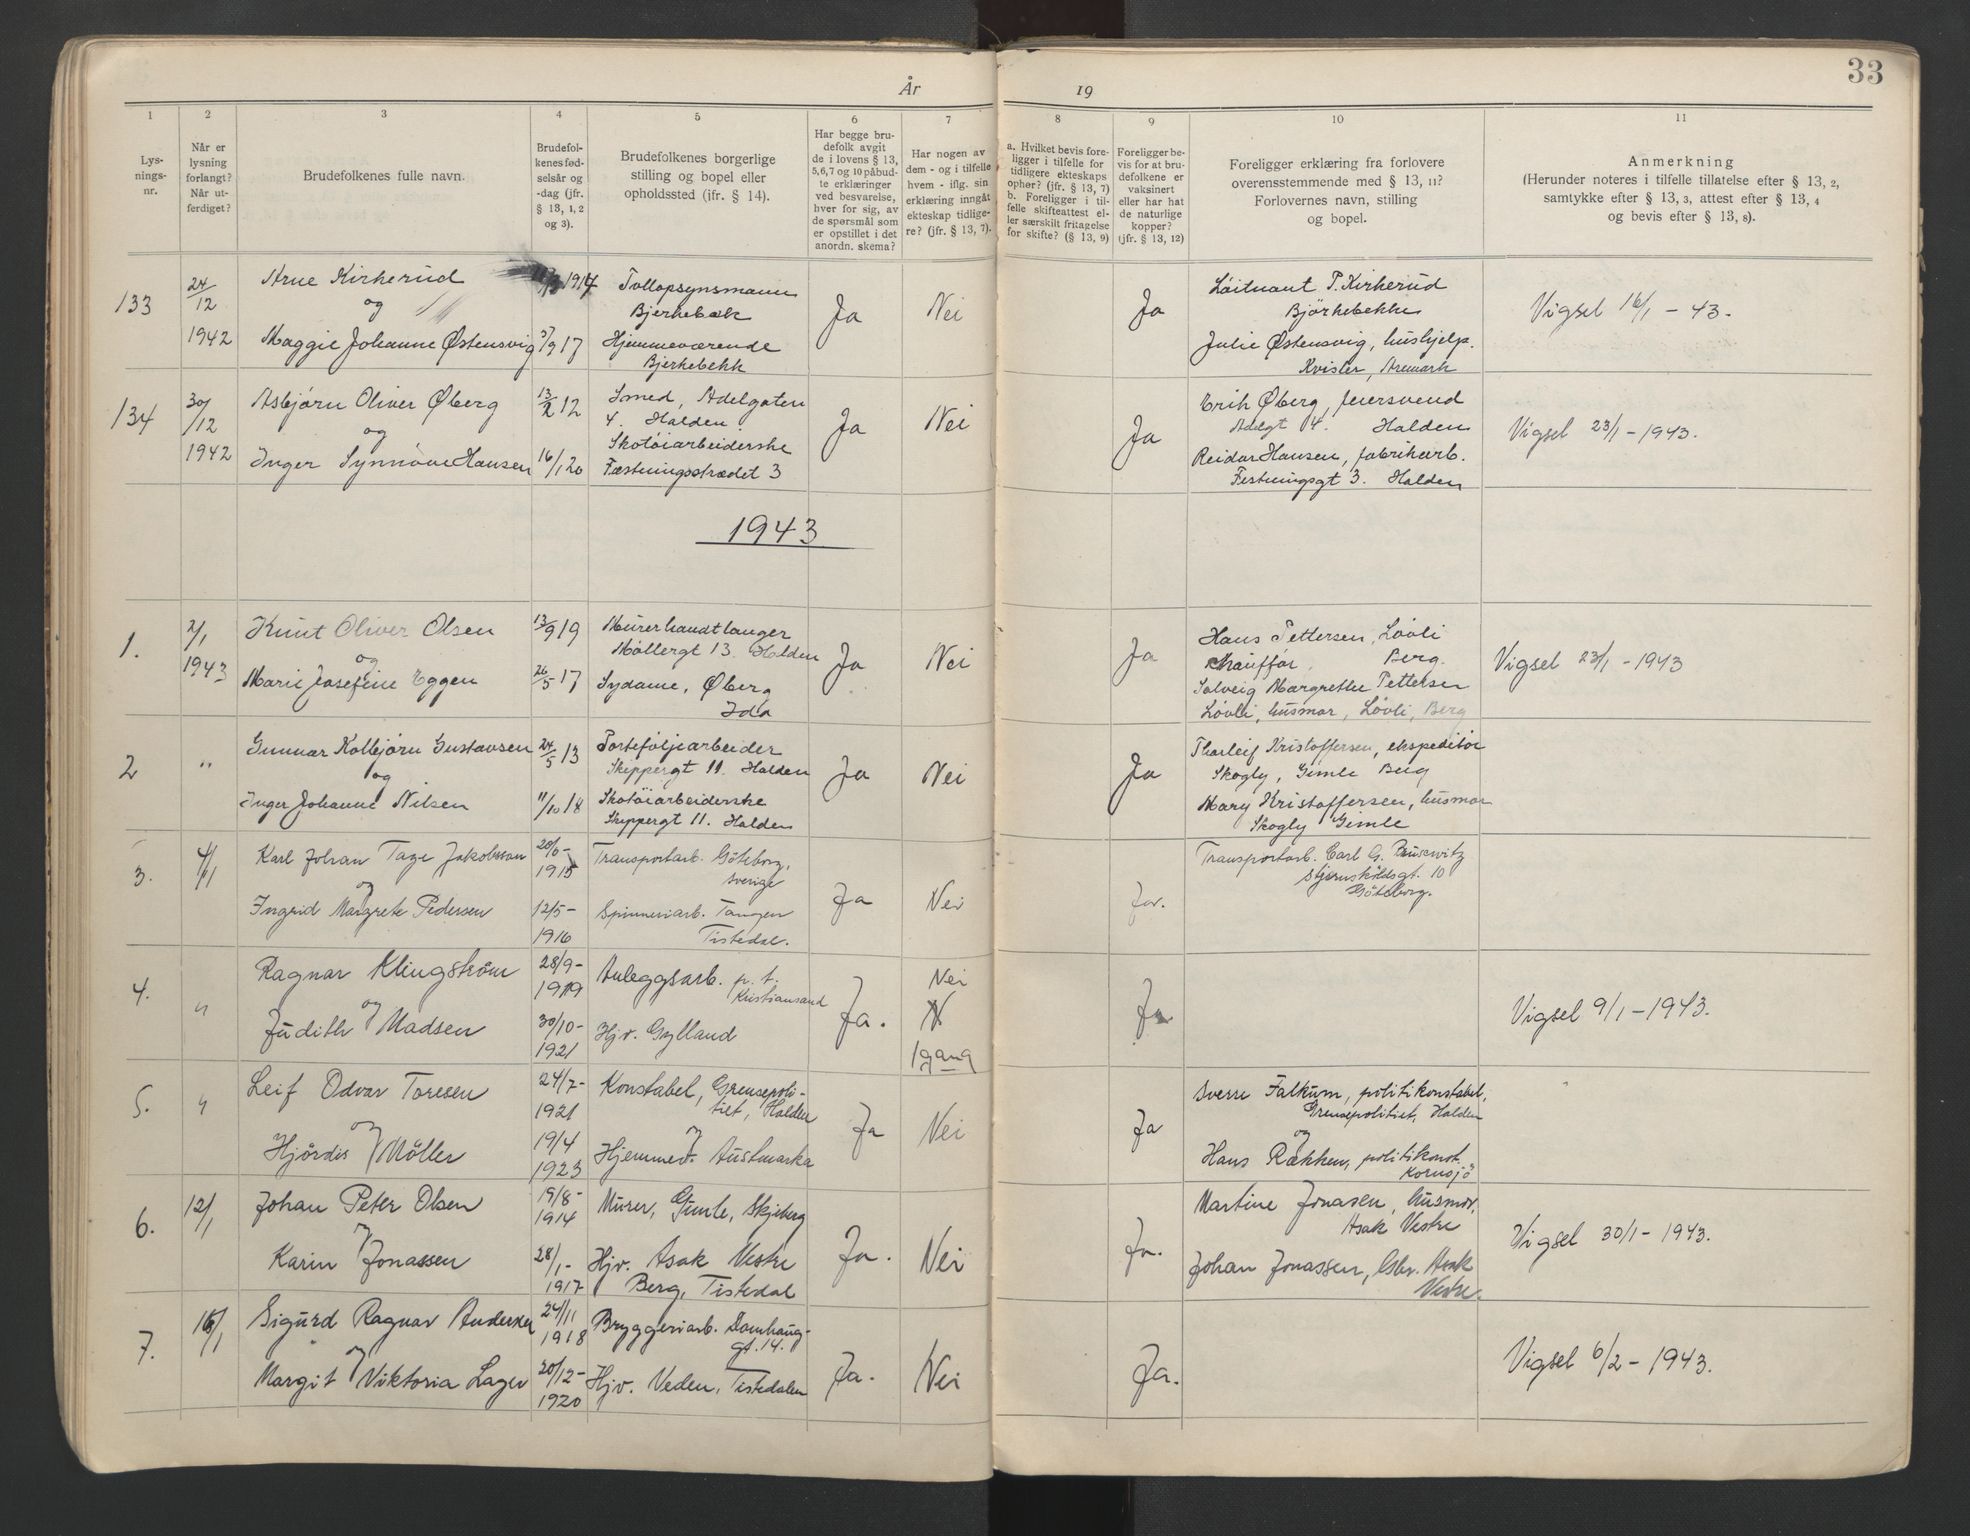 33
År 19
1 2 3 4 5 6 7 8 9 10 11
Lys-
nings-
nr.
Når er
lysning
forlangt?
Når ut-
ferdiget?
Brudefolkenes fulle navn.
Brudefol-
kenes fød-
selsår og
-dag (jfr.
§ 13, 1, 2
og 3).
Brudefolkenes borgerlige
stilling og bopel eller
opholdssted (jfr. § 14).
Har begge bru-
defolk avgit
de i lovens § 13,
5,6,7 og 10 påbud-
te erklæringer
ved besvarelse,
hver for sig, av
de spørsmål som
er opstillet i det
anordn. skema?
Har nogen av
dem - og i tilfelle
hvem - iflg. sin
erklæring inngått
ekteskap tidlige-
re? (jfr. § 13, 7).
a. Hvilket bevis fore-
ligger i tilfelle for
tidligere ekteskaps
opher? (jfr. § 13, 7)
b. Foreligger i til-
felle skifteattest el-
ler særskilt fritagelse
for skifte? (§ 13, 9)
Foreligger be-
vis for at bru-
defolkene er
vaksinert
eller har hat
de naturlige
kopper?
(jfr. § 13, 12)
Foreligger erklæring fra forlovere
overensstemmende med § 13, 11?
Forlovernes navn, stilling
og bopel.
Anmerkning
(Herunder noteres i tilfelle tillatelse efter § 13, 2,
samtykke efter § 13, 3, attest efter § 13, 4
og bevis efter § 13, 8).
133
24/12
1942
Arne Kirkerud
og
Maggie Johanne Østensvig
1914
9 17
Tollopsynsmann
Bjerkebæk
Hjemmeværende
Bjerkebekk
Ja
Nei
Ja
Løitnant P. Kirkerud
Bjørkebekke
Julie Østensvig, hushjelp.
Kvisler, Aremark
Vigsel 16/1 - 43.
134
30/12
1942
Asbjørn Oliver Øberg
og
Inger Synnøve Hansen
13/2 12
16/1 20
Smed, Adelgaten
4. Halden.
Skotøiarbeiderske
Fæstningsstrædet 3
Ja
Nei
Ja
Erik Øberg, feiersvend
Adelgt 4. Halden
Reidar Hansen, fabrikarb.
Festningsgt 3. Halden
Vigsel 23/1 - 1943.
1943
1.
2/1
1943
Knut Oliver Olsen
og
Marie Josefine Eggen
13/9 19
26/5 17
Murerhandtlanger
Møllergt 13. Halden
Sydame, Øberg
Idd
Ja
Nei
Ja
Hans Pettersen, Løvli
chauffør, Berg.
Solveig Margrethe Pettersen
Løvli, husmor, Løvli, Berg
Vigsel 23/1 - 1943
2
"
Gunnar Kolbjørn Gustavsen
og
Inger Johanne Nilsen
24/5 13
11/10 18
Porteføljearbeider
Skippergt 11. Halden
Skotøiarbeiderske
Skippergt 11. Halden
Ja
Nei
Ja
Thorleif Kristoffersen, ekspeditør
Skogly, Gimle Berg
Mary Kristoffersen, husmor
Skogly Gimle
3.
4/1
Karl Johan Tage Jakobsson
og
Ingrid Margrete Pedersen
1915
12/5 -
1916
Transportarb. Göteborg,
Sverige
Spinneriarb. Tangen
Tistedal.
Ja
Nei
Ja.
Transportarb. Carl G. Brusewitz
Stjernsköldsgt. 10
Göteborg.
4.
"
Ragnar Klingström
og
Judith Madsen
28/9 -
1919
30/10 -
1921
Anleggsarb. p. t.
Kristiansand
Hjv. Gylland
Ja.
Nei
N
1 gang
Ja
Vigsel 9/1 - 1943.
5.
"
Leif Odvar Toresen
og
Hjørdis Möller
24/7 -
1921
19/4
1923
Konstabel, Grensepoli-
tiet, Halden
og
Hjemmev. Austmarka
Ja
Nei
Ja
Sverre Falkum, politikonstabel,
Grensepolitiet, Halden
og
Hans Rækken, politikonst.
Kornsjø
6.
12/1
Johan Peter Olsen
og
Karin Jonassen
19/8 -
1914
28/1 -
1917
Murer, Gimle, Skjeberg
Hjv. Asak Vestre
Berg, Tistedal
Ja.
Nei
Ja.
Martine Jonasen, husmor,
Asak Vestre
Johan Jonassen, Gbr. Asak
Vestre.
Vigsel 30/1 - 1943.
7.
Sigurd Ragnar Andersen
og
Margit Viktoria Lager
24/11
1918
20/12 -
1920
Bryggeriarb. Damhaug-
gt. 14.
Hjv. Veden, Tistedalen
Ja.
Nei
Ja.
Vigsel 6/2 - 1943.